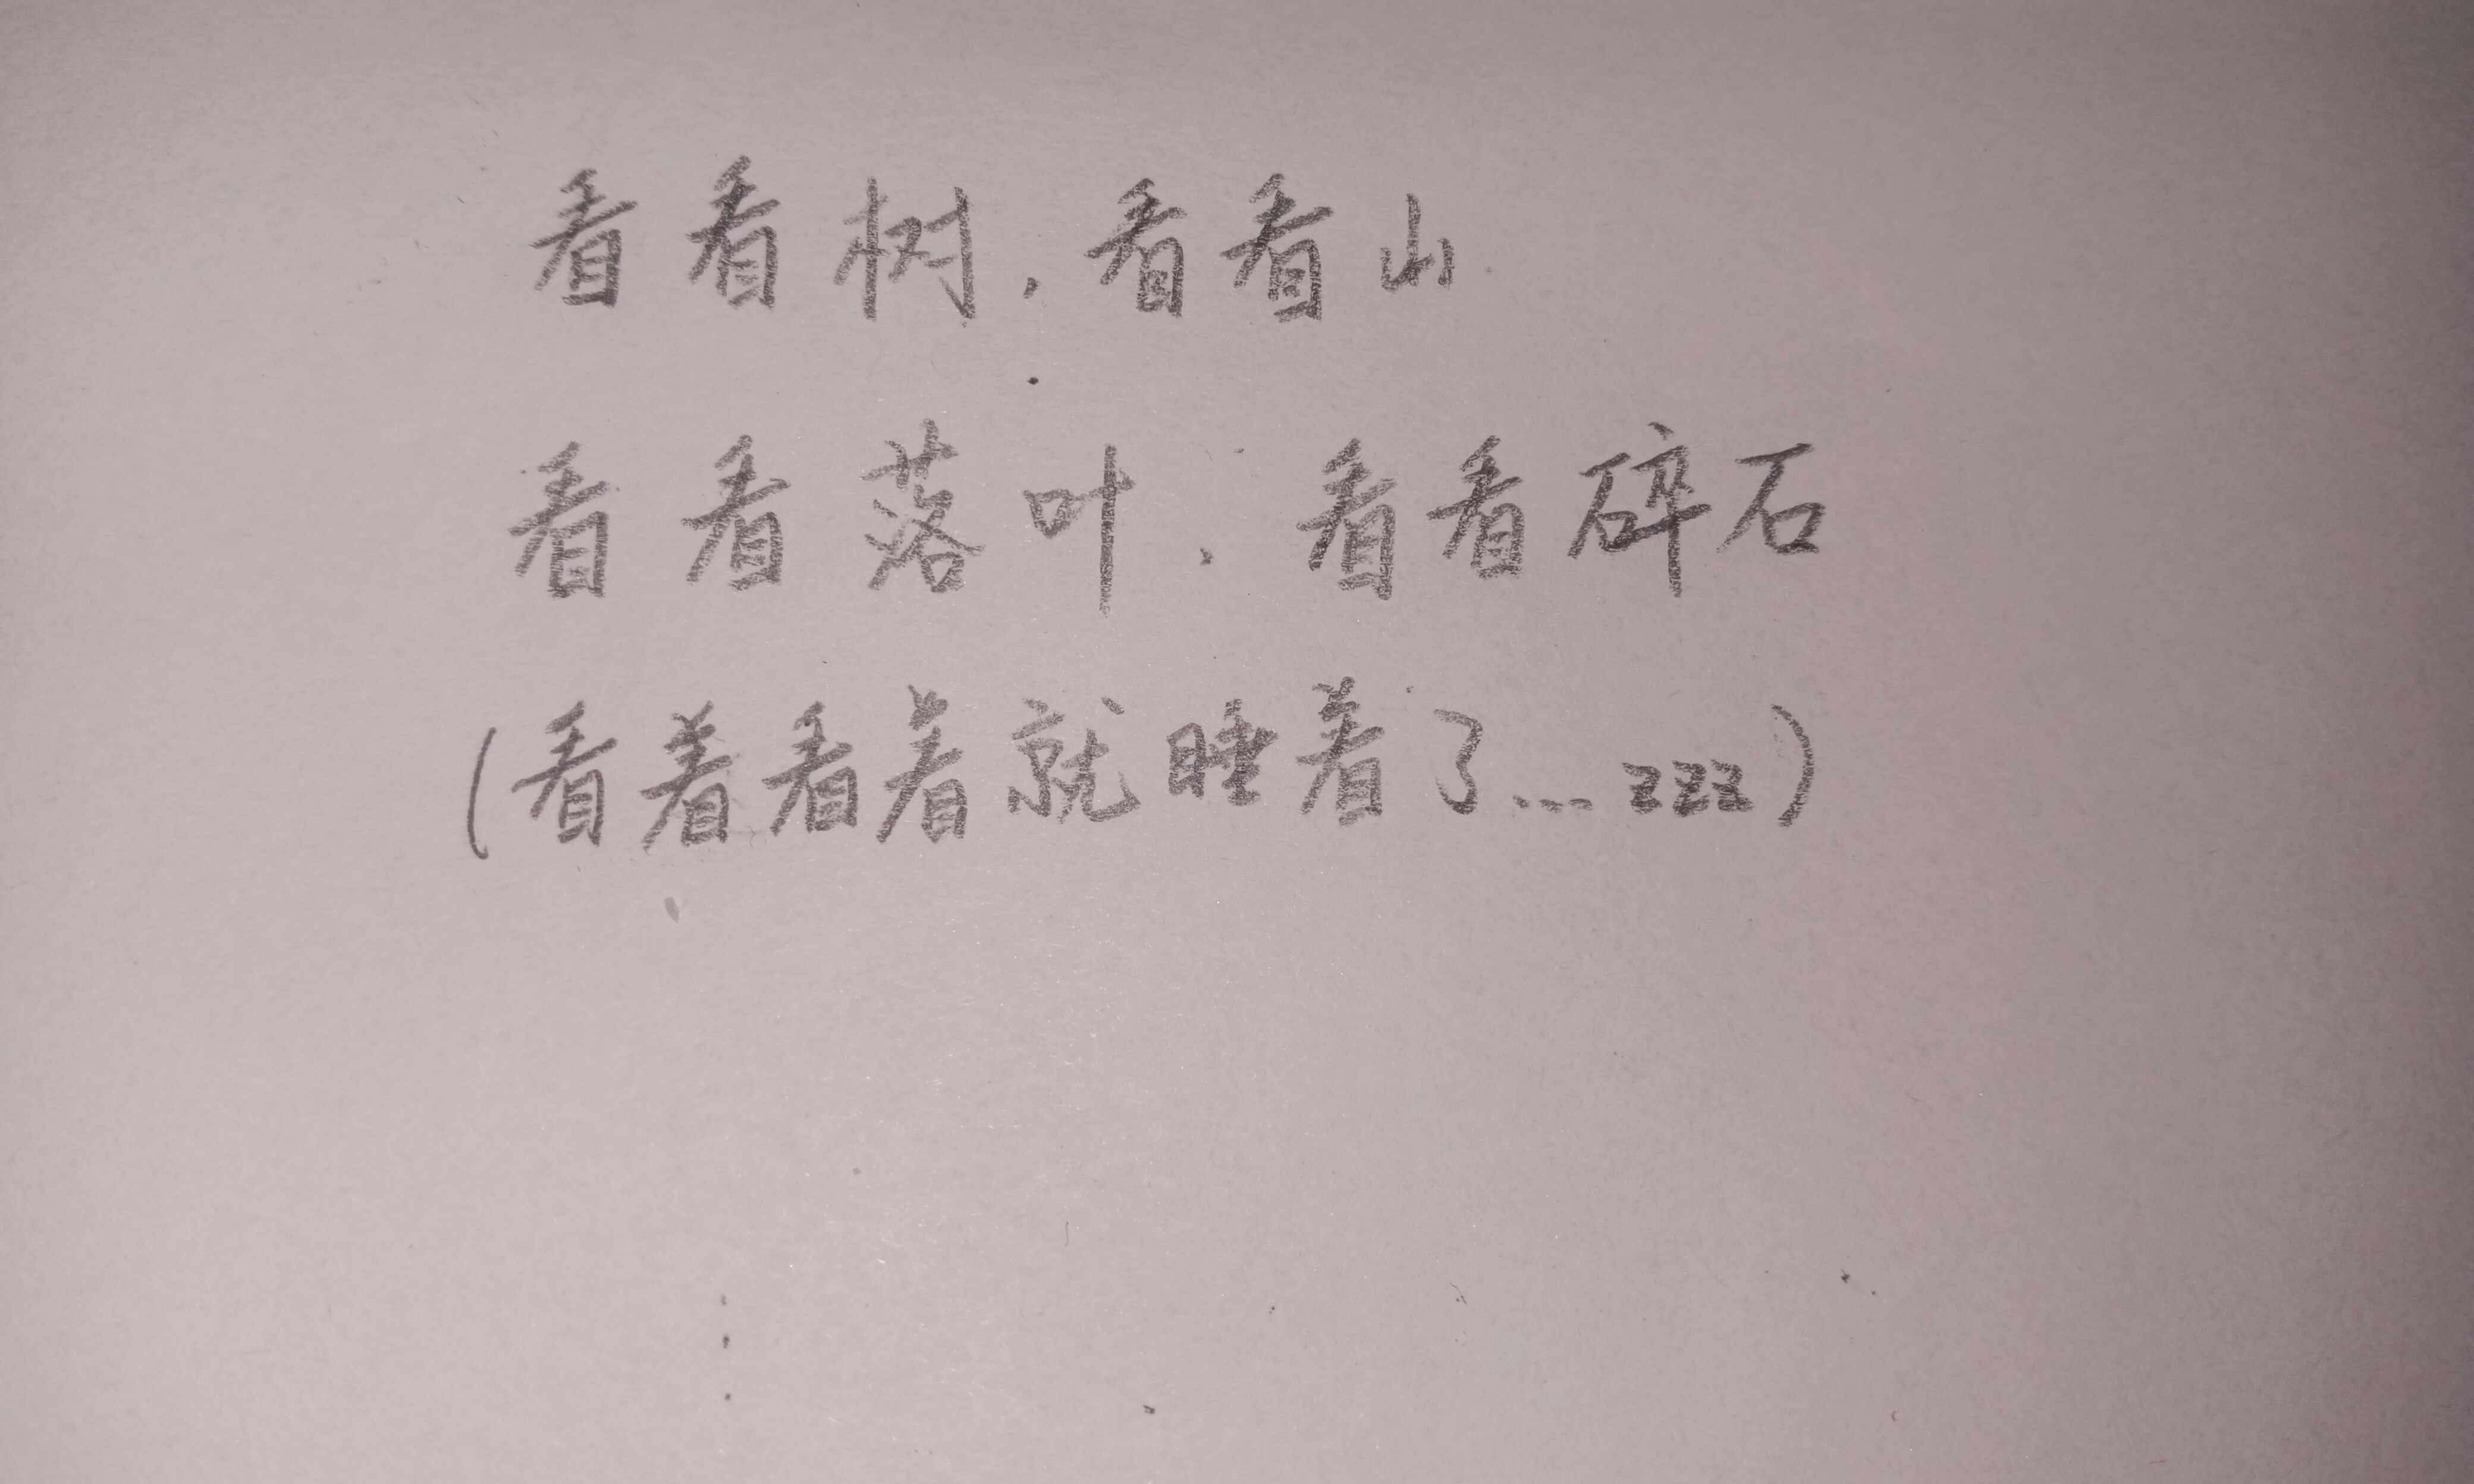 看看树，看看山
看看落叶，看看碎石
（看着看着就睡着了...zzz）